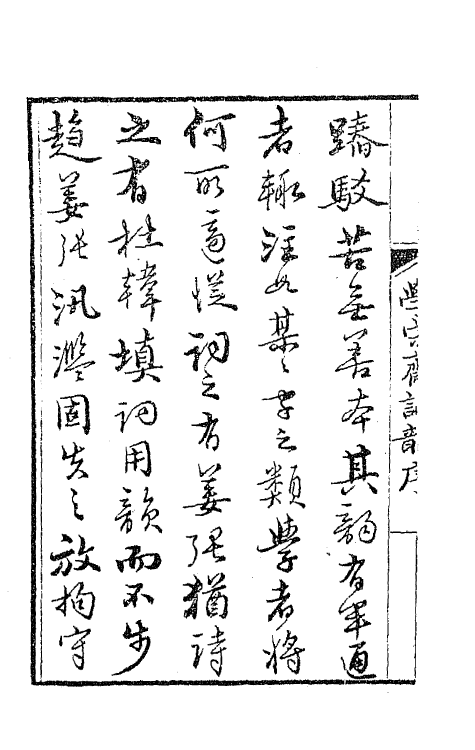 學宋齋詞韻序
踳駁苦無善本其韵有半通
者輒注以某〻字之類學者將
何所適從詞之有姜張猶詩
之有杜韓填詞用韻而不步
趨姜張汎濫固失之放拘守